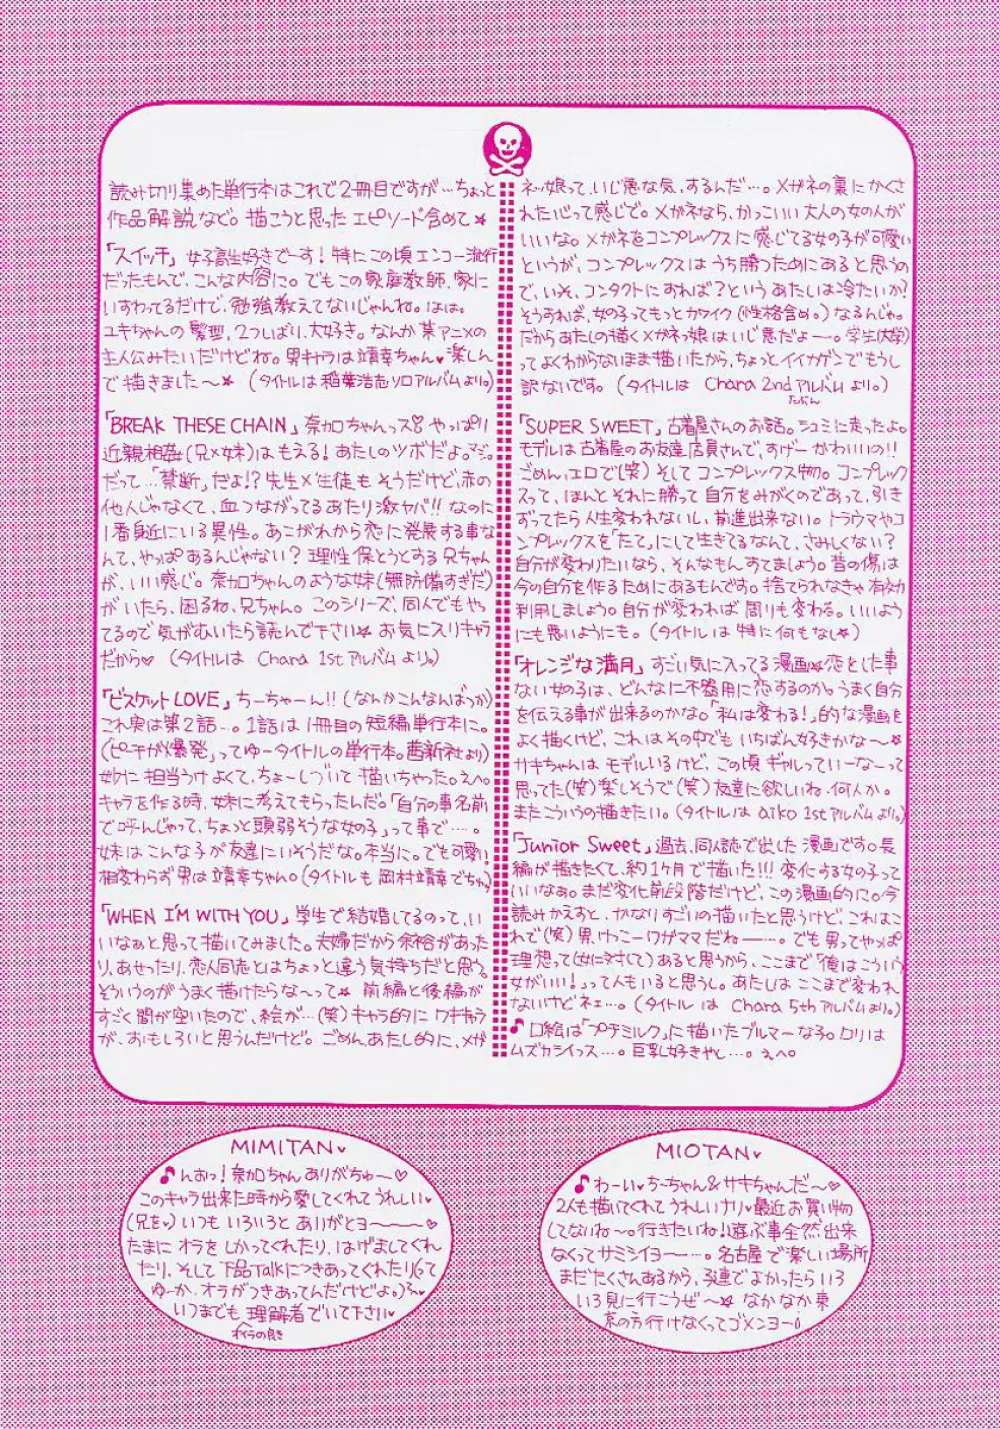 読み切り集めた単行本はこれで2冊目ですが…ちょっと
作品解説など。描こうと思ったエピソード含めて★
「スイッチ」女子高生好きでーす!特にこの頃エンコー流行
だったもんで、こんな内容に。でもこの家庭教師、家に
いすわってるだけで、勉強教えてないじゃんね。はは。
ユキちゃんの髪型、2つしばり、大好き。なんか某アニメの
主人公みたいだけどね。男キャラは靖幸ちゃん♥楽しん
で描きました〜★ (タイトルは稲葉浩志ソロアルバムより。)
「BREAK THESE CHAIN」奈加ちゃんっス♡やっぱり
近親相姦(兄×妹)はもえる!あたしのツボだよ。マジ。
だって…「禁断」だよ!?先生×生徒もそうだけど、赤の
他人じゃなくて、血つながってるあたり激ヤバ!!なのに
1番身近にいる異性。あこがれから恋に発展する事な
んて、やっぱあるんじゃない?理性保とうとする兄ちゃん
が、いい感じ。奈加ちゃんのような妹(無防備すぎだ)
がいたら、困るね、兄ちゃん。このシリーズ、同人でもやっ
てるので気がむいたら読んで下さい★お気に入りキャラ
だから♥ (タイトルは Chara 1stアルバムより。)
「ビスケットLOVE」ちーちゃーん!!(なんかこんなんばっか)
これ実は第2話…。1話は1冊目の短編単行本に。
(「ピーチが爆発」ってゆータイトルの単行本。茜新社より)
妙に担当うけよくて、ちょーしづいて描いちゃった。えへ。
キャラを作る時、妹に考えてもらったんだ。「自分の事名前
で呼んじゃって、ちょっと頭弱そうな女の子」って事で…。
妹はこんな子が友達にいそうだな。本当に。でも可愛い
相変わらず男は靖幸ちゃん。(タイトルも岡村靖幸でちゅ)
「WHEN I'M WITH YOU」学生で結婚してるのって、い
いなぁと思って描いてみました。夫婦だから余裕があった
り、あせったり、恋人同志とはちょっと違う気持ちだと思う。
そういうのがうまく描けたらな〜って★ 前編と後編が
すごく間が空いたので、絵が…(笑)キャラ的にワキキャラ
が、おもしろいと思うんだけど。ごめん、あたし的に、メガ
ネッ娘って、いじ悪な気、するんだ…。メガネの裏にかくさ
れた心って感じで。メガネなら、かっこいい大人の女の人が
いいな。メガネをコンプレックスに感じてる女の子が可愛い
というが、コンプレックスはうち勝つためにあると思うの
で、いっそ、コンタクトにすれば?というあたしは冷たいか?
そうすれば、女の子ってもっとカワイク(性格含め。)なるんじゃ。
だからあたしの描くメガネっ娘はいじ悪だよー。学生(大学)
ってよくわからないまま描いたから、ちょっとイイカゲンでもうし
訳ないです。(タイトルは Chara 2ndアルバムより。)
たぶん
「SUPER SWEET」古着屋さんのお話。シュミに走ったよ。
モデルは古着屋のお友達店員さんで、すげーかわいいの!!
ごめん、エロで(笑)そしてコンプレックス物。コンプレック
スって、ほんとそれに勝って自分をみがくのであって、引き
ずってたら人生変われないし、前進出来ない。トラウマやコ
ンプレックスを「たて」にして生きてるなんて、さみしくない?
自分が変わりたいなら、そんなもんすてましょう。昔の傷は
今の自分を作るためにあるもんです。捨てられなきゃ有効
利用しましょう。自分が変われば周りも変わる。いいよう
にも悪いようにも。(タイトルは特に何もなし★)
「オレンジな満月」すごい気に入ってる漫画★恋とした事
ない女の子は、どんなに不器用に恋するのか。うまく自分
を伝える事が出来るのかな。「私は変わる!」的な漫画を
よく描くけど、これはその中でもいちばん好きかな〜★
サキちゃんはモデルいるけど、この頃ギャルっていーなーって
思ってた(笑)楽しそうで(笑)友達に欲しいね、何人か。
またこういうの描きたい。(タイトルは aiko 1stアルバムより。)
「Junior Sweet」過去、同人誌で出した漫画です。長
編が描きたくて、約1ヶ月で描いた!!!変化する女の子って
いいなぁ。まだ変化前段階だけど、この漫画的に。今
読みかえすと、かなりすごいの描いたと思うけど、これはこ
れで(笑)男、けっこーワガママだねー…。でも男ってやっぱ
理想って(女に対して)あると思うから、ここまで「俺はこういう
女がいい!」って人もいると思うし。あたしはここまで変われ
ないけどネェ…。(タイトルは Chara 5thアルバムより。)
♪口絵は「プチミルク」に描いたブルマーな子。ロリは
ムズカシイっス…。巨乳好きやし…。えへ。
MIMITAN♥
♪んおっ!奈加ちゃんありがちゅ〜♡
このキャラ出来た時から愛してくれてうれしい♥
(兄も♥)いつもいろいろとありがとヨ〜〜♡
たまにオラをしかってくれたり、はげましてくれ
たり、そして下品Talkにつきあってくれたり(って
ゆーか、オラがつきあってんだけどよ。)
いつまでも理解者でいて下さい♥
オイラの良き
MIOTAN♥
♪わーい♥ちーちゃん&サキちゃんだ〜♡
2人も描いてくれてうれしいナリ♥最近お買い物
してないね〜行きたいね!遊ぶ事全然出来
なくってサミシイヨー…。名古屋で楽しい場所
まだたくさんあるから、子連でよかったらいろ
いろ見に行こうぜ〜★なかなか東
京の方行けなくってゴメンヨー。